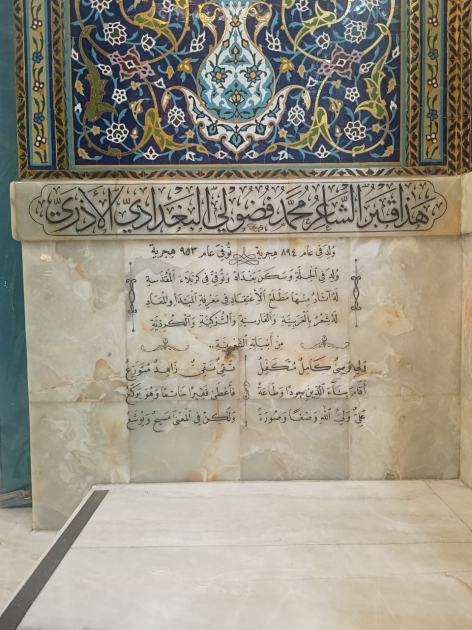 هذا قبر الشاعر محمد فضولي البغدادي الأذري
وُلِدَ في عام ٨٩٤ هجرية تُوفيَ عام ٩٥٣ هجرية
وُلِدَ في الحِلَّةِ وَسَكَنَ بَغدادَ وَتُوفِّيَ في كَربَلاءَ المُقَدَّسَةِ
لَهُ آثارٌ مِنها مَطلَعُ الاعتِقادِ في مَعرِفَةِ المَبدَأِ وَالمَعادِ
لَهُ شِعرٌ بِالعَرَبِيَّةِ وَالفارِسِيَّةِ وَالتُّركِيَّةِ وَالكُردِيَّةِ
مِن الشِّعرِيَّةِ...
وَلِيٌّ وَصِيٌّ كامِلٌ مُتَكَفِّلٌ تَقِيٌّ نَقِيٌّ زاهِدٌ مُتَوَرِّعٌ
أَقامَ بِناءَ الدّينِ جوداً وَطاعَةً فَأَعطى فَقيراً خاتَماً وَهُوَ يَركَعُ
عَلِيٌّ وَلِيُّ اللهِ وَصفاً وَصورَةً وَلكِن في المَعنى مَسيحٌ وَيوشَعُ